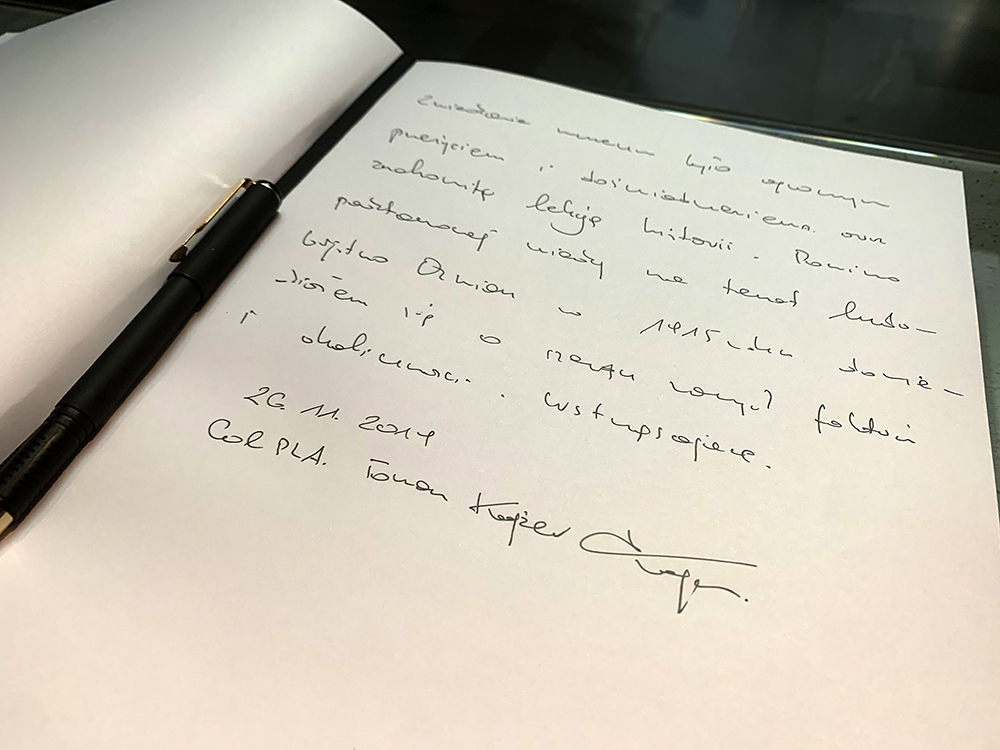 Zwiedzanie muzeum było ogromnym
przeżyciem i doświadczeniem oraz
znakomitą lekcją historii. Pomimo
posiadanej wiedzy na temat ludo-
bójstwa Ormian w 1915 roku dowie-
działem się o szeregu nowych faktów
i okoliczności. Wstrząsające.
26.11.2014
Col PLA. Roman